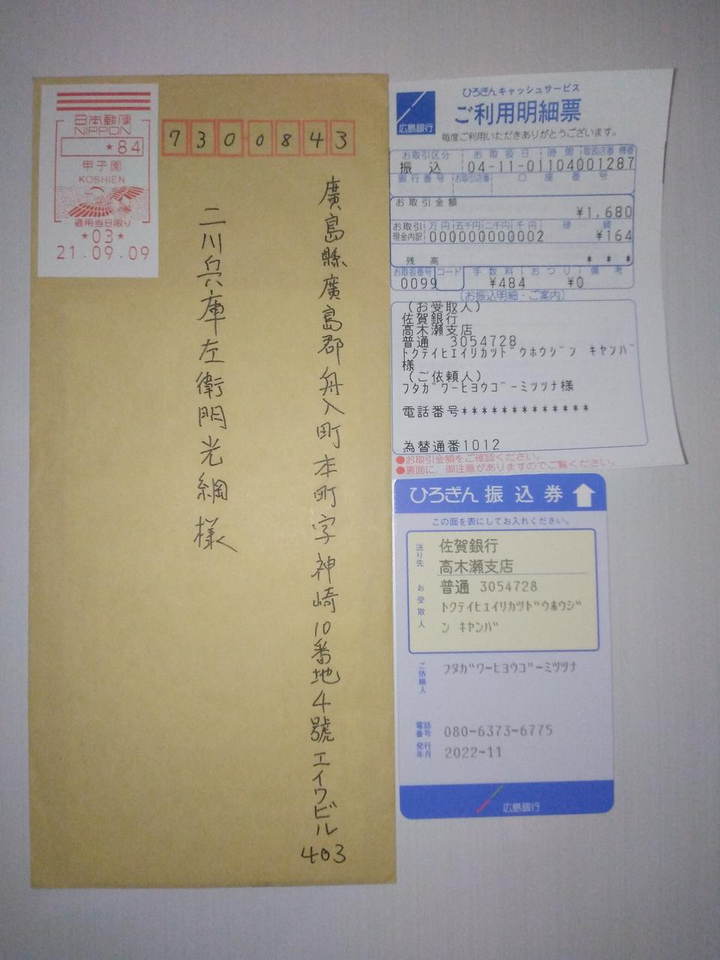 日本郵便
NIPPON
*84
甲子園
KOSHIEN
適用当日限り
*03*
21.09.09
7300843
廣島縣廣島郡舟入町本町字神崎10番地4號エイワビル403
二川兵庫左衛門光綱様
広島銀行
ひろぎんキャッシュサービス
ご利用明細票
毎度ご利用いただきありがとうございます。
お取引区分 お取扱日 時間 取扱店番 機番
振込 04-11-01104001287
銀行番号 お取引店番 口座番号
お取引金額
¥1,680
お取引現金内訳 万円 五千円 二千円 千円 硬貨
000000000002 ¥164
残高 ***
お取扱番号 コード 手数料 おつり 備考
0099 ¥484 ¥0
(お振込明細・ご案内)
(お受取人)
佐賀銀行
高木瀬支店
普通 3054728
トクテイヒエイリカツドウホウジン キャンパ
様
(ご依頼人)
フタガワーヒョウゴーミツツナ様
電話番号*************
為替通番1012
●お取引金額をご確認ください。
●裏面に、御注意がありますのでご覧ください。
ひろぎん 振込券
この面を表にしてお入れください。
送り先
佐賀銀行
高木瀬支店
お受取人
普通 3054728
トクテイヒエイリカツドウホウジ
ン キャンパ
ご依頼人
フタガワーヒョウゴーミツツナ
電話番号 080-6373-6775
発行年月 2022-11
広島銀行